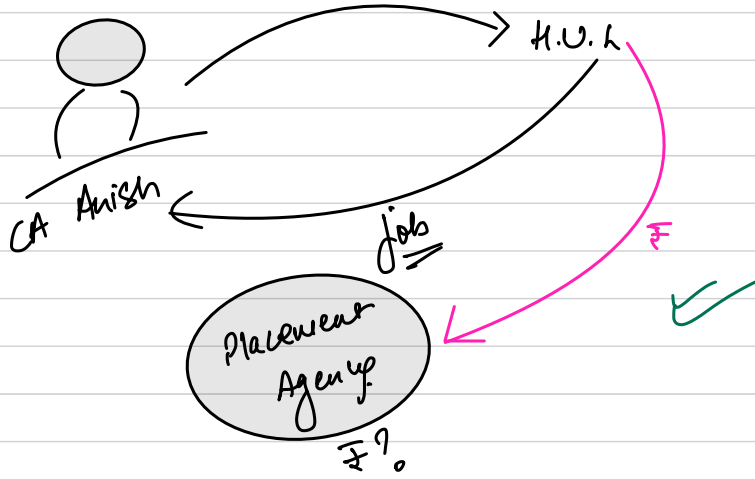 H.U.L
CA Anish
job
₹
Placement
Agency
₹?